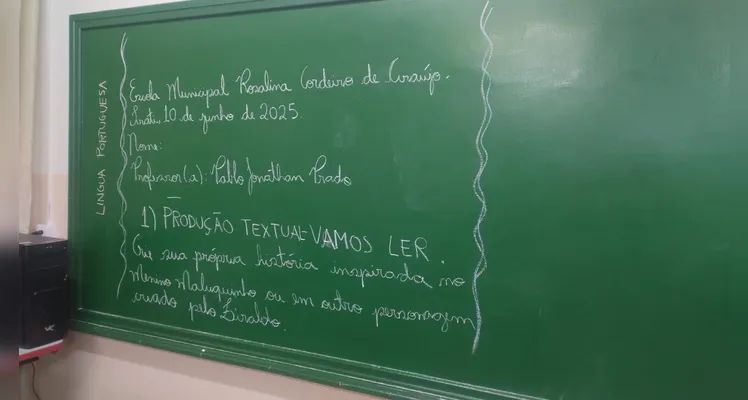 LINGUA PORTUGUESA
Escola Municipal Rosalina Cordeiro de Araújo.
Irati, 10 de junho de 2025.
Nome:
Professor(a): Pablo Jonathan Prado
1) PRODUÇÃO TEXTUAL-VAMOS LER.
Crie sua própria história inspirada no
Menino Maluquinho ou em outro personagem
criado pelo Ziraldo.